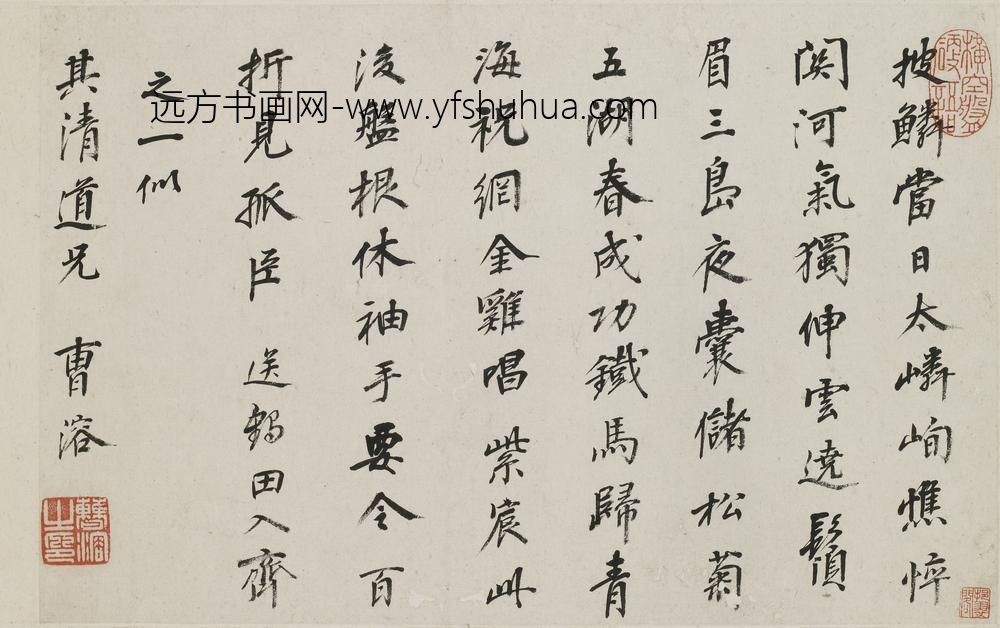 披鱗當日太嶙峋憔悴
関河氣獨伸雲遶鬚
眉三島夜囊儲松菊
五湖春成功鐵馬歸青
海祝網金雞唱紫宸此
後盤根休袖手要令百
折見孤臣 送鶴田入齊
之一似
其清道兄 曹溶
远方书画网-www.yfshuhua.com
曹溶之印